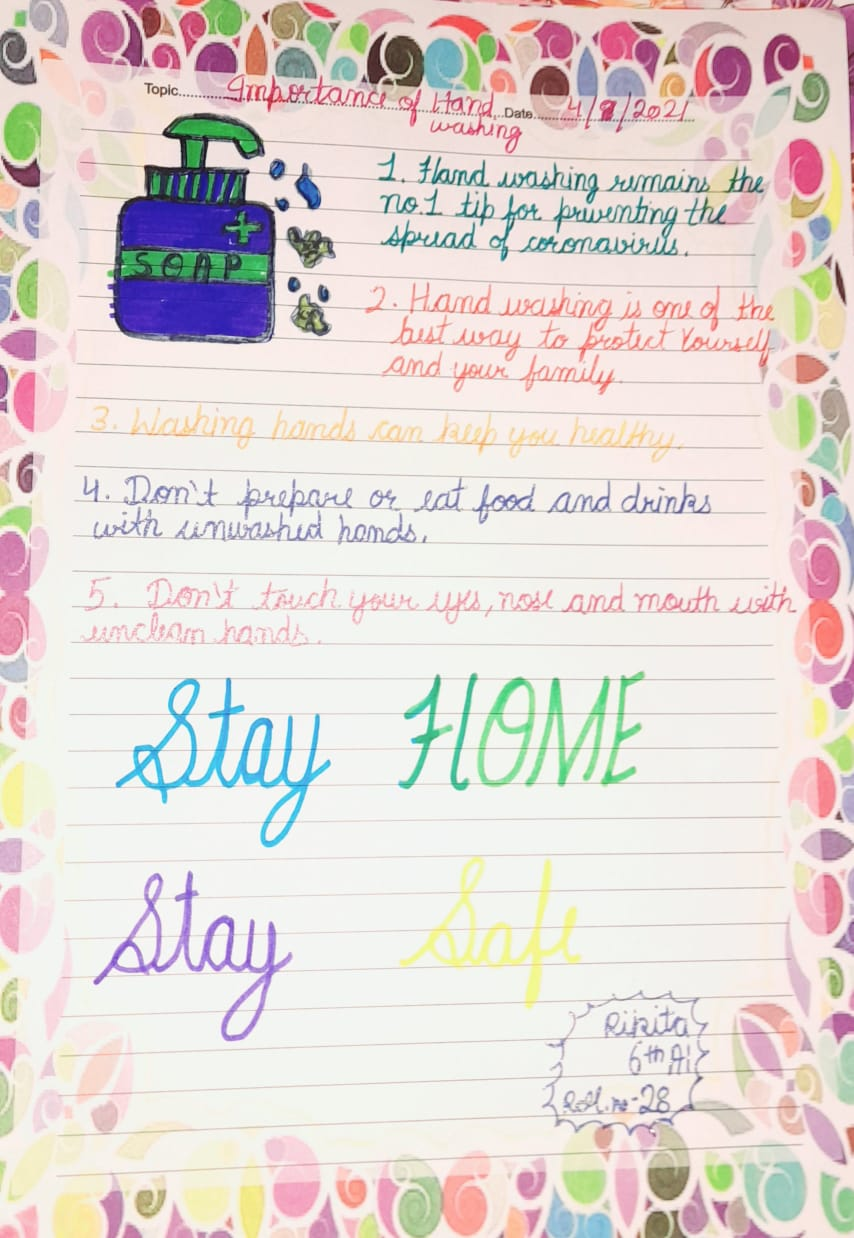 Topic Importance of Hand Date 4/9/2021
washing
SOAP
1. Hand washing remains the
no.1 tip for preventing the
spread of coronavirus.
2. Hand washing is one of the
best way to protect Yourself
and your family.
3. Washing hands can keep you healthy.
4. Don't prepare or eat food and drinks
with unwashed hands.
5. Don't touch your eyes, nose and mouth with
unclean hands.
Stay HOME
Stay Safe
6th A1
Roll.no-28